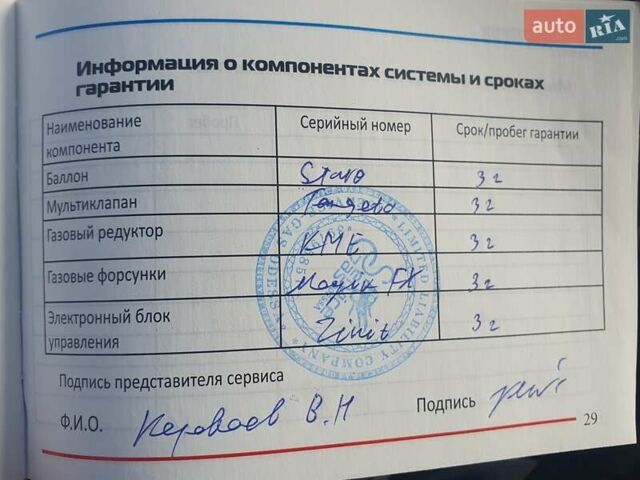 auto RIA .com
Информация о компонентах системы и сроках
гарантии
Наименование компонента Серийный номер Срок/пробег гарантии
Баллон Stako 3 г
Мультиклапан 3 г
Газовый редуктор KME 3 г
Газовые форсунки FX 3 г
Электронный блок управления 3 г
LIMITED LIABILITY COMPANY GAS ODESS
Подпись представителя сервиса
Ф.И.О. В.Н Подпись
29